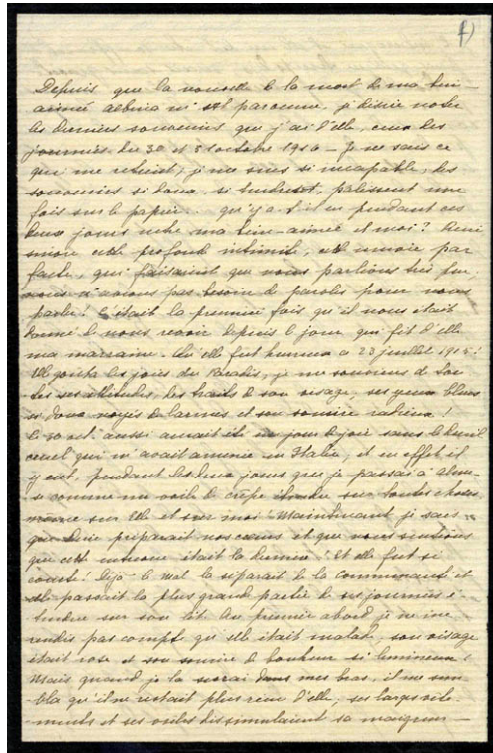 1)
Depuis que la nouvelle de la mort de ma bien-
aimée m'est parvenue, je désire noter
les derniers souvenirs que j'ai d'elle, ceux des
journées du 30 et 31 octobre 1910 – Je ne sais ce
qui me retient, je me sens si incapable, les
souvenirs si doux, si tendres, pâlissent une
fois sur le papier... qu'y a-t-il eu pendant ces
deux jours entre ma bien-aimée et moi? 
union cette profonde intimité, cette union par
faite, qui faisaient que nous parlions très peu
nous n'avions pas besoin de paroles pour nous
parler! C'était la première fois qu'il nous était
donné de nous revoir depuis le jour qui fit d'elle
ma marraine. Qu'elle fut heureuse ce 23 juillet
Elle goûta les joies du Paradis, je me souviens de tou
tes ses attitudes, les traits de son visage, ses yeux bleus
si doux noyés de larmes et son sourire radieux!
Le 30 oct. aussi aurait été un jour de joie sans le deuil
cruel qui m'avait amenée en Italie, et en effet il
y eut, pendant les deux jours que je passai à
comme un voile de crêpe étendu sur toutes choses
même sur Elle et sur moi. Maintenant je sais
que Dieu préparait nos cœurs et que nous sentions
que cette entrevue était la dernière! Et elle fut si
courte! Déjà le mal la séparait de la Communauté et
elle passait la plus grande partie de ses journées é-
tendue sur son lit. Au premier abord je ne me
rendis pas compte qu'elle était malade, son visage
était rose et son sourire de bonheur si lumineux!
Mais quand je la serrai dans mes bras, il me sem
bla qu'il ne restait plus rien d'elle, ses larges vête-
ments et ses voiles dissimulaient sa maigreur –